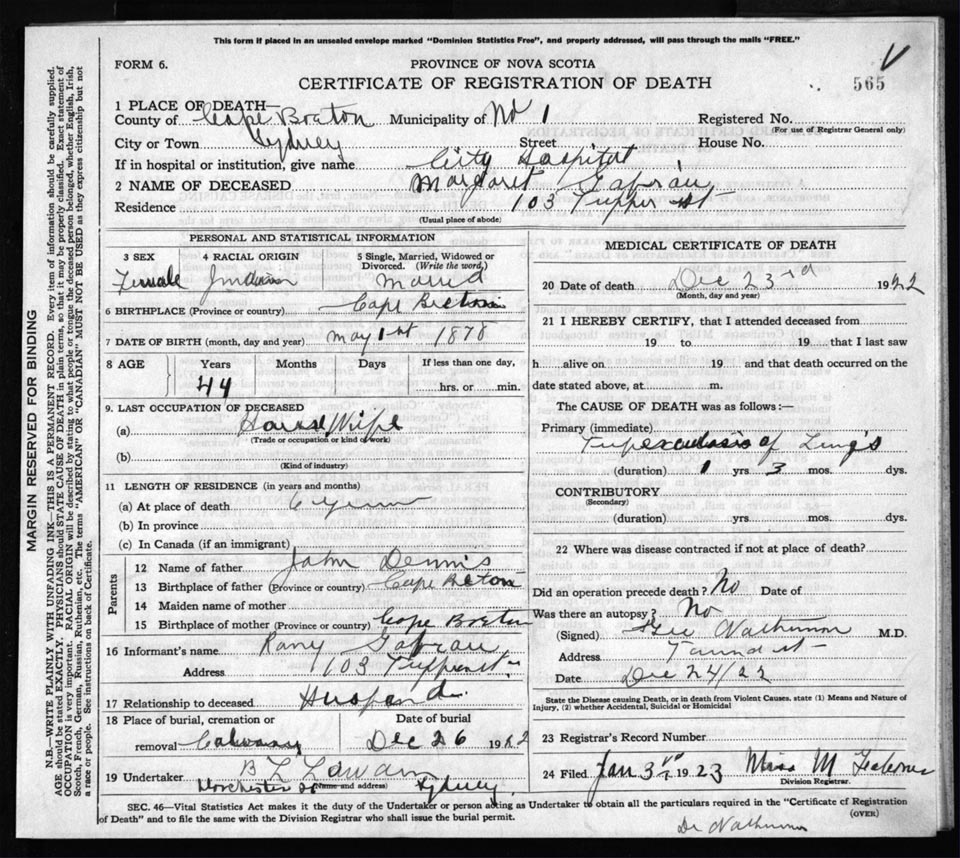 This form if placed in an unsealed envelope marked "Dominion Statistics Free", and properly addressed, will pass through the mails "FREE."
FORM 6.
PROVINCE OF NOVA SCOTIA
CERTIFICATE OF REGISTRATION OF DEATH
565
1 PLACE OF DEATH—
County of Cape Breton Municipality of No 1 Registered No.
(For use of Registrar General only)
City or Town Sydney Street House No.
If in hospital or institution, give name City Hospital
2 NAME OF DECEASED Margaret
Residence 103 Tupper St
(Usual place of abode)
PERSONAL AND STATISTICAL INFORMATION
3 SEX 4 RACIAL ORIGIN 5 Single, Married, Widowed or Divorced. (Write the word)
Female Indian Married
6 BIRTHPLACE (Province or country) Cape Breton
7 DATE OF BIRTH (month, day and year) May 1st 1878
8 AGE Years Months Days If less than one day,
44 hrs. or min.
9. LAST OCCUPATION OF DECEASED
(a) House Wife
(Trade or occupation or kind of work)
(b)
(Kind of industry)
11 LENGTH OF RESIDENCE (in years and months)
(a) At place of death 6
(b) In province
(c) In Canada (if an immigrant)
Parents
12 Name of father John Dennis
13 Birthplace of father (Province or country) Cape Breton
14 Maiden name of mother
15 Birthplace of mother (Province or country) Cape Breton
16 Informant's name
Address 103 Tupper st
17 Relationship to deceased Husband
18 Place of burial, cremation or Date of burial
removal Calvary Dec 26 1922
19 Undertaker
(Name and address)
Dorchester St Sydney
MEDICAL CERTIFICATE OF DEATH
20 Date of death Dec 23rd 1922
(Month, day and year)
21 I HEREBY CERTIFY, that I attended deceased from
19 to 19 that I last saw
h alive on 19 and that death occurred on the
date stated above, at m.
The CAUSE OF DEATH was as follows:-
Primary (immediate)
of Lungs
(duration) 1 yrs. 3 mos. dys.
CONTRIBUTORY
(Secondary)
(duration) yrs. mos. dys.
22 Where was disease contracted if not at place of death?
Did an operation precede death? No Date of
Was there an autopsy? No
(Signed) M.D.
Address
Date Dec 24/22
State the Disease causing Death, or in death from Violent Causes, state (1) Means and Nature of Injury, (2) whether Accidental, Suicidal or Homicidal
23 Registrar's Record Number
24 Filed Jan 3rd 1923 Miss M
Division Registrar.
SEC. 46—Vital Statistics Act makes it the duty of the Undertaker or person acting as Undertaker to obtain all the particulars required in the "Certificate of Registration
of Death" and to file the same with the Division Registrar who shall issue the burial permit.
(OVER)
MARGIN RESERVED FOR BINDING
N.B.—WRITE PLAINLY WITH UNFADING INK—THIS IS A PERMANENT RECORD. Every item of information should be carefully supplied.
AGE should be stated EXACTLY. PHYSICIANS should STATE CAUSE OF DEATH in plain terms, so that it may be properly classified. Exact statement of
OCCUPATION is very important. RACIAL ORIGIN will be described by stating to what people or tongue the deceased person belonged, whether English, Irish,
Scotch, French, German, Russian, Ruthenian, etc. The terms "AMERICAN" OR "CANADIAN" MUST NOT BE USED as they express citizenship but not
a race or people. See instructions on back of Certificate.